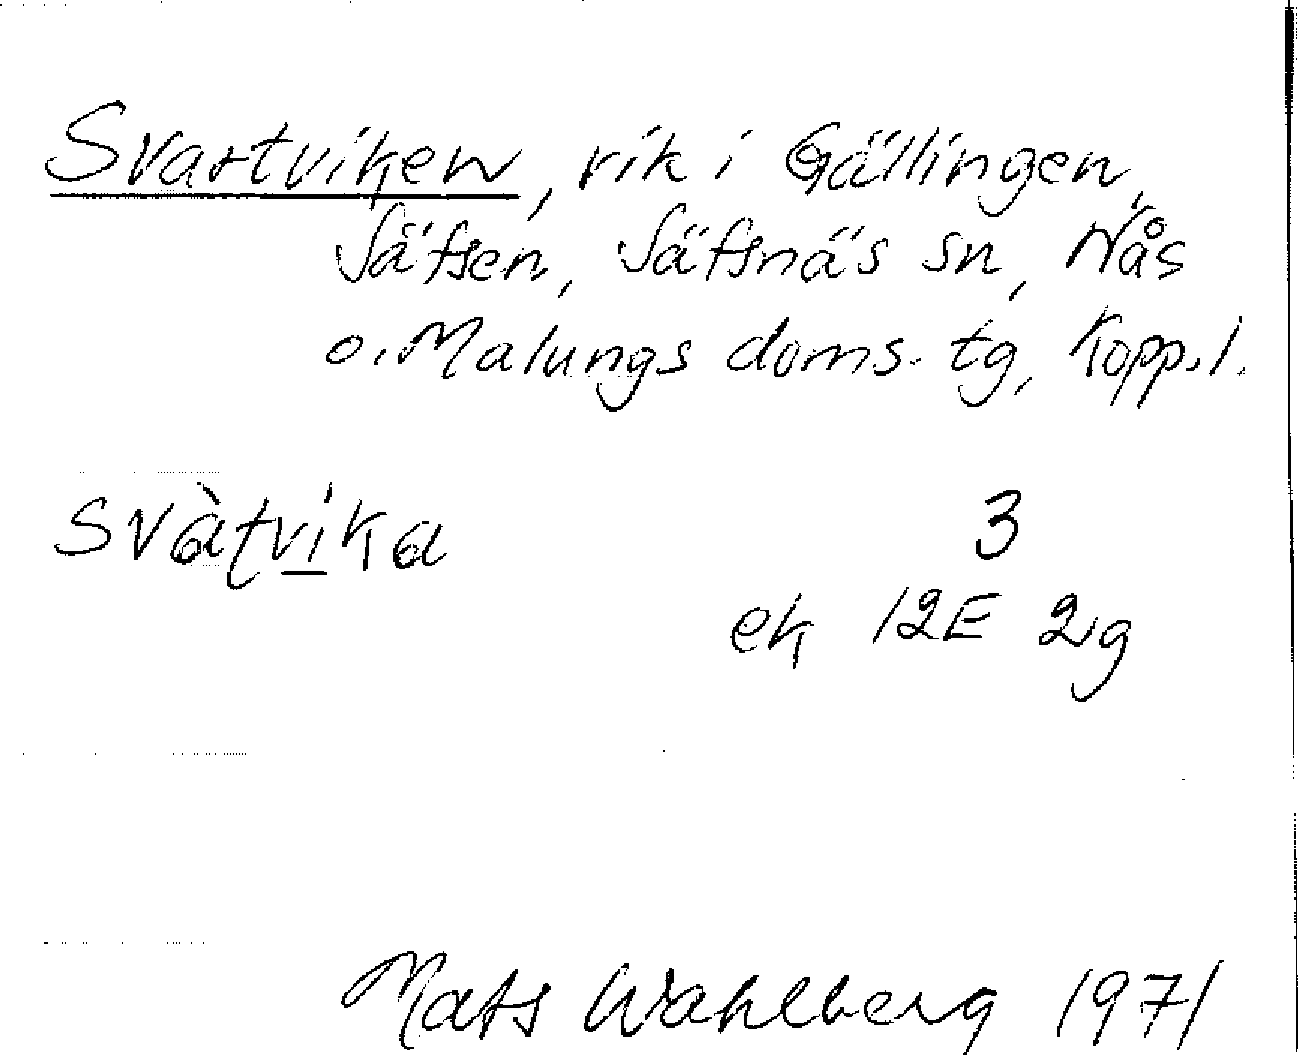 Svartviken, vik i Gällingen,
Säfsen, Säfsnäs sn, Nås
o. Malungs doms. tg, Kopp. l.
svàtvika 3
ek 12E 2g
Mats Wahlberg 1971